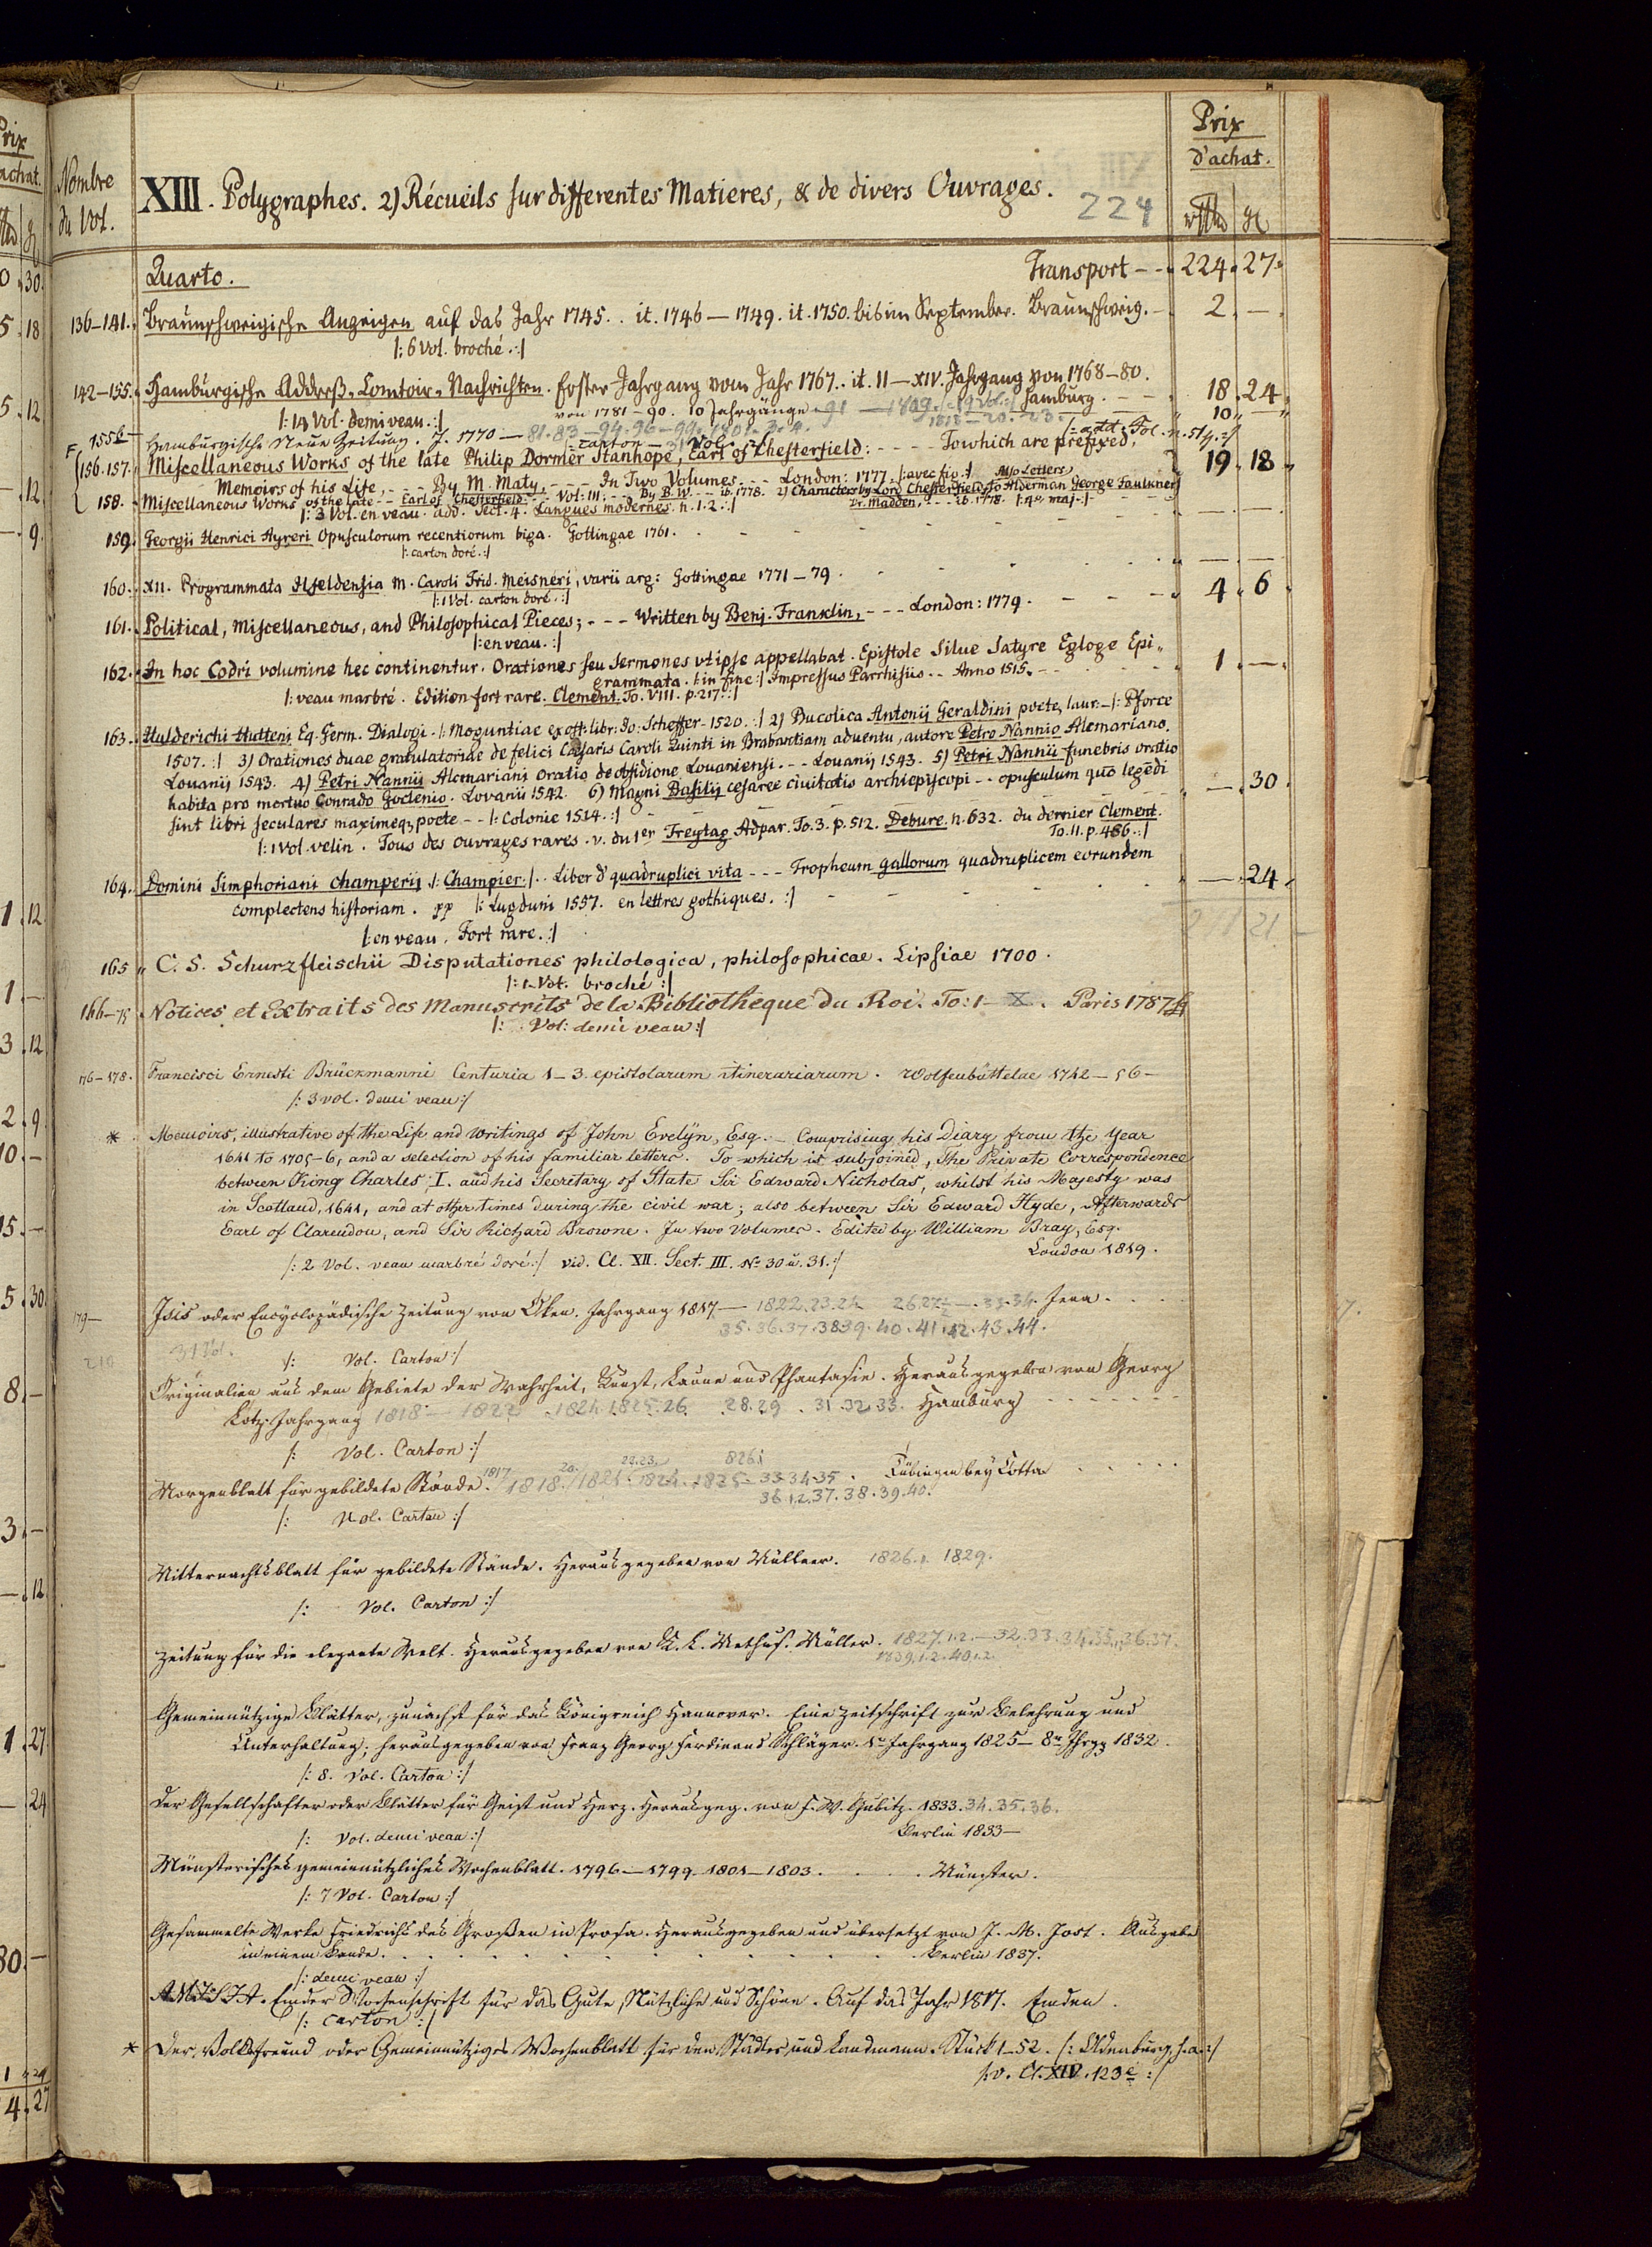 Prix
d'achat.
Nombre
du Vol.
XIII. Polygraphes. 2) Récueils sur differentes Matieres, & de divers Ouvrages.
224
Quarto.
Transport - - 224 . 27
136-141. Braunschweigische Anzeigen auf das Jahr 1745. . it. 1746 — 1749. it. 1750. bis im September. Braunschweig. - 2 . —
|: 6 Vol. broché. :|
142-155. Hamburgische Address-Comtoir-Nachrichten. Erster Jahrgang vom Jahr 1767. . it. II — XIV. Jahrgang von 1768-80.
von 1781-90. 10 Jahrgänge - 91 — 1809. Hamburg. - - 18 . 24
|: 14 Vol. demi veau. :|
10 —
155b Hamburgische Neue Zeitung. J. 1770 — 81. 83 — 94. 96 - 99.
|: add. Fol. n. 51
carton — Vol.
156. 157. Miscellaneous Works of the late Philip Dormer Stanhope, Earl of Chesterfield: - - - To which are prefixed,
Memoirs of his Life, - - - By M. Maty, - - - In Two Volumes. - - - London: 1777. |: avec fig. :| 19 . 18
158. Miscellaneous Works of the late - - Earl of Chesterfield: - - Vol: III; - - By B. W. - - ib. 1778. 2) Characters by Lord Chesterfield, Also Letters to Alderman George Faulkner,
Dr. Madden, - - - ib. 1778. |: 4°. maj. :|
|: 3 Vol. en veau. add. Sect. 4. Langues modernes. n. 1. 2. :|
159. Georgii Henrici Ayreri Opusculorum recentiorum biga. Gottingae 1761. — . —
|: carton doré. :|
160. XII. Programmata Ilfeldensia M. Caroli Frid. Meisneri, varii arg: Gottingae 1771-79. — . —
|: 1 Vol. carton doré. :|
161. Political, Miscellaneous, and Philosophical Pieces; - - - Written by Benj. Franklin, - - - London: 1779. - - - 4 . 6
|: en veau. :|
162. In hoc Codri volumine hec continentur. Orationes seu Sermones vt ipse appellabat. Epistole Silue Satyre Egloge Epi-
grammata. |: in fine :| Impressus Parrhisiis - - Anno 1515. - 1 . —
|: veau marbré. Edition fort rare. Clement. To. VIII. p. 217. :|
163. Hulderichi Hutteni Eq. Germ. Dialogi. |: Moguntiae ex off: libr: Jo: Scheffer. 1520. :| 2) Bucolica Antonij Geraldini poete, laur: - |: Pforce
1507. :| 3) Orationes duae gratulatoriae de felici Caesaris Caroli Quinti in Brabantiam aduentu, autore Petro Nannio Alcmariano.
Louanij 1543. 4) Petri Nannii Alcmariani Oratio de obsidione Louaniensi. - - Louanij 1543. 5) Petri Nannii funebris oratio
habita pro mortuo Conrado Goclenio. Lovanii 1542. 6) Magni Basilij cesaree ciuitatis archiepiscopi - - opusculum quo legēdi
sint libri seculares maximeq; poete - - |: Colonie 1514. :| — . 30
|: 1 Vol. velin. Tous des ouvrages rares. v. du 1er Freytag Adpar. To. 3. p. 512. Debure. n. 632. du dernier Clement.
To. II. p. 486. :|
164. Domini Simphoriani Champerij |: Champier :| . . Liber d' quadruplici vita - - - Tropheum gallorum quadruplicem eorundem
complectens historiam. pp |: Lugduni 1557. en lettres gothiques. :| — . 24
|: en veau. Fort rare. :|
165 C. S. Schurzfleischii Disputationes philologica, philosophicae. Lipsiae 1700.
|: 1 Vol. broché :|
166-75 Notices et Extraits des Manuscrits de la Bibliotheque du Roi. To: 1 - X. Paris 1787
|: Vol: demi veau :|
176-178. Francisci Ernesti Brückmanni Centuria 1-3. epistolarum itinerariarum. Wolfenbüttelae 1742-56-
|: 3 vol. demi veau :|
* Memoirs, illustrative of the Life and writings of John Evelyn, Esq. - Comprising his Diary from the Year
1641 to 1705-6, and a selection of his familiar letters. To which is subjoined, The Private Correspondence
between King Charles I. and his Secretary of State Sir Edward Nicholas, whilst his Majesty was
in Scotland, 1641, and at other times during the civil war; also between Sir Edward Hyde, Afterwards
Earl of Clarendon, and Sir Richard Browne. In two Volumes. Edited by William Bray, Esq.
London 1819.
|: 2 Vol. veau marbré doré :| vid. Cl. XII. Sect. III. No 30 u. 31. :|
179 — Isis oder Encyclopädische Zeitung von Oken. Jahrgang 1817 — 1822. 23. 24 26. 27 — 33. 34. Jena.
35. 36. 37. 38 39. 40. 41. 42. 43. 44.
31 Vol.
|: Vol. Carton :|
210
Originalien aus dem Gebiete der Wahrheit, Kunst, Laune und Phantasie. Herausgegeben von Georg
Lotz. Jahrgang 1818 — 1822 . 1824. 1825. 26 28. 29 . 31. 32. 33. Hamburg
|: Vol. Carton :|
Morgenblatt für gebildete Stände. 1817 1818. 20. 1821. 22. 23. 1824. 1825 826. 33 34 35. Tübingen bey Cotta
36. 1. 2. 37. 38. 39. 40.
|: Vol. Carton :|
Mitternachtsblatt für gebildete Stände. Herausgegeben von Müllner. 1826. 1829.
|: Vol. Carton :|
Zeitung für die elegante Welt. Herausgegeben von K. L. Methus. Müller. 1827. 1. 2. — 32. 33. 34. 35. 36. 37.
1839. 1. 2. 40. 1. 2.
Gemeinnützige Blätter, zunächst für das Königreich Hannover. Eine Zeitschrift zur Belehrung und
Unterhaltung; herausgegeben von Franz Georg Ferdinand Schläger. 1r Jahrgang 1825 — 8r Jhrgg 1832.
|: 8. Vol. Carton :|
Der Gesellschafter oder Blätter für Geist und Herz. Herausgeg. von F. W. Gubitz. 1833. 34. 35. 36.
Berlin 1833 —
|: Vol. demi veau :|
Münsterisches gemeinnützliches Wochenblatt. 1796 — 1799 1801 — 1803. Münster.
|: 7 Vol. Carton :|
Gesammelte Werke Friedrichs des Großen in Prosa. Herausgegeben und übersetzt von J. M. Jost. Ausgabe
in einem Bande. Berlin 1837.
|: demi veau :|
Emder Wochenschrift für das Gute, Nützliche und Schöne. Auf das Jahr 1817. Emden.
|: carton :|
* Der Volksfreund oder Gemeinnütziges Wochenblatt für den Städter und Landmann. Stück 1-52. |: Oldenburg, s. a. :|
|: v. Cl. XIV. 123c :|